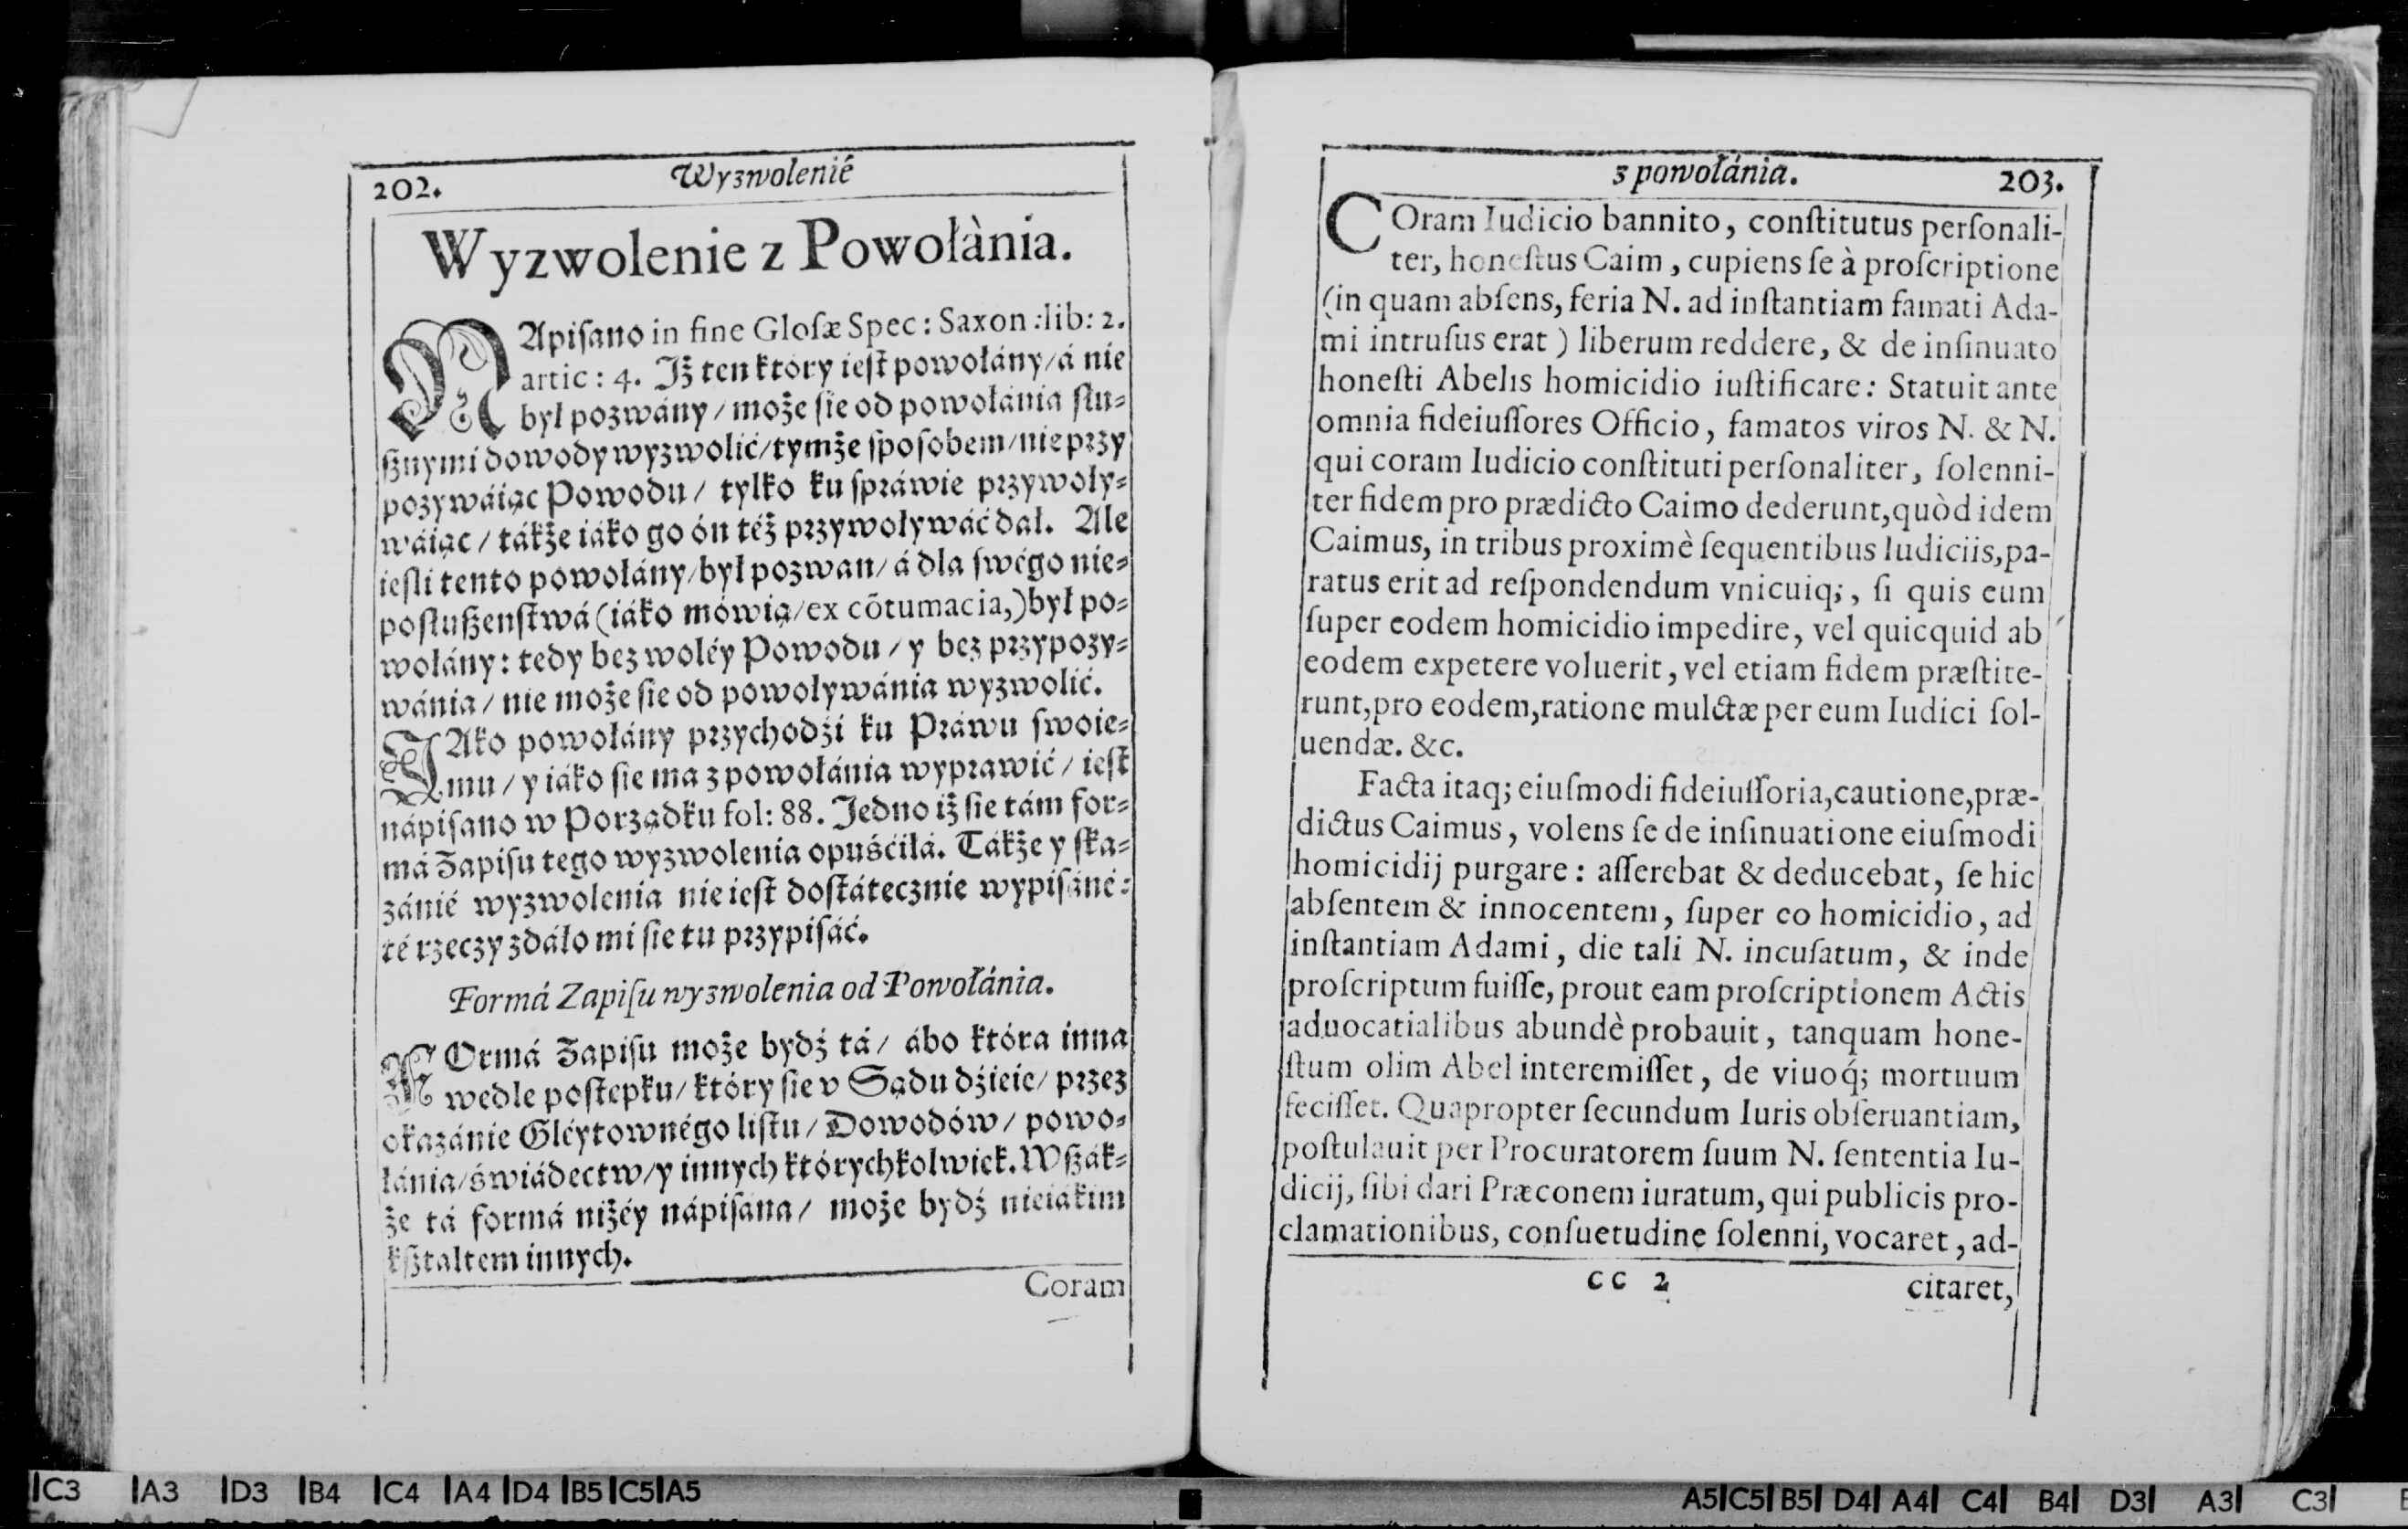 202. Wyzwolenié
Wyzwolenie z Powołània.
NApiſano in fine Gloſæ Spec: Saxon: lib: 2.
artic: 4. Iż ten ktory ieſt powołány/ á nie
był pozwány/ może ſie od powołánia ſłu-
ſznymi dowody wyzwolić/ tymże ſpoſobem/ nie przy
pozywáiąc Powodu/ tylko ku ſpráwie przywoły-
wáiąc/ tákże iáko go ón też przywoływáć dał. Ale
ieſli tento powołány/ był pozwan/ á dla ſwégo nie-
poſłuſzenſtwá (iáko mówią/ ex cõtumacia,) był po-
wołány: tedy bez woléy Powodu/ y bez przypozy-
wánia/ nie może ſie od powoływánia wyzwolić.
IAko powołány przychodźi ku Práwu ſwoie-
mu/ y iáko ſie ma z powołánia wyprawić/ ieſt
nápiſano w Porządku fol: 88. Jedno iż ſie tám for-
má Zapiſu tego wyzwolenia opuśćiłá. Tákże y ſka-
zánié wyzwolenia nie ieſt doſtátecznie wypiſáné:
té rzeczy zdáło mi ſie tu przypiſáć.
Formá Zapiſu wyzwolenia od Powołánia.
FOrmá Zapiſu może bydź tá/ ábo która inna
wedle poſtepku/ który ſie v Sądu dźieie/ przez
okazánie Gléytownégo liſtu/ Dowodów/ powo-
łánia/ świádectw/ y innych którychkolwiek. Wſzák-
że tá formá niżéy nápiſana/ może bydź nieiákim
kſztaltem innych.
Coram
z powołánia. 203.
COram Iudicio bannito, conſtitutus perſonali-
ter, honeſtus Caim, cupiens ſe à proſcriptione
(in quam abſens, feria N. ad inſtantiam famati Ada-
mi intruſus erat) liberum reddere, & de inſinuato
honeſti Abelis homicidio iuſtificare: Statuit ante
omnia fideiuſſores Officio, famatos viros N. & N.
qui coram Iudicio conſtituti perſonaliter, ſolenni-
ter fidem pro prædicto Caimo dederunt, quòd idem
Caimus, in tribus proximè ſequentibus Iudiciis, pa-
ratus erit ad reſpondendum vnicuiq;, ſi quis eum
ſuper eodem homicidio impedire, vel quicquid ab
eodem expetere voluerit, vel etiam fidem præſtite-
runt, pro eodem, ratione mulctæ per eum Iudici ſol-
uendæ. &c.
Facta itaq; eiuſmodi fideiuſſoria, cautione, præ-
dictus Caimus, volens ſe de inſinuatione eiuſmodi
homicidij purgare: aſſerebat & deducebat, ſe hic
abſentem & innocentem, ſuper eo homicidio, ad
inſtantiam Adami, die tali N. incuſatum, & inde
proſcriptum fuiſſe, prout eam proſcriptionem Actis
aduocatialibus abundè probauit, tanquam hone-
ſtum olim Abel interemiſſet, de viuoq́; mortuum
feciſſet. Quapropter ſecundum Iuris obſeruantiam,
poſtulauit per Procuratorem ſuum N. ſententia Iu-
dicij, ſibi dari Præconem iuratum, qui publicis pro-
clamationibus, conſuetudine ſolenni, vocaret, ad-
CC 2 citaret,
C3 A3 D3 B4 C4 A4 D4 B5 C5 A5
A5 C5 B5 D4 A4 C4 B4 D3 A3 C3